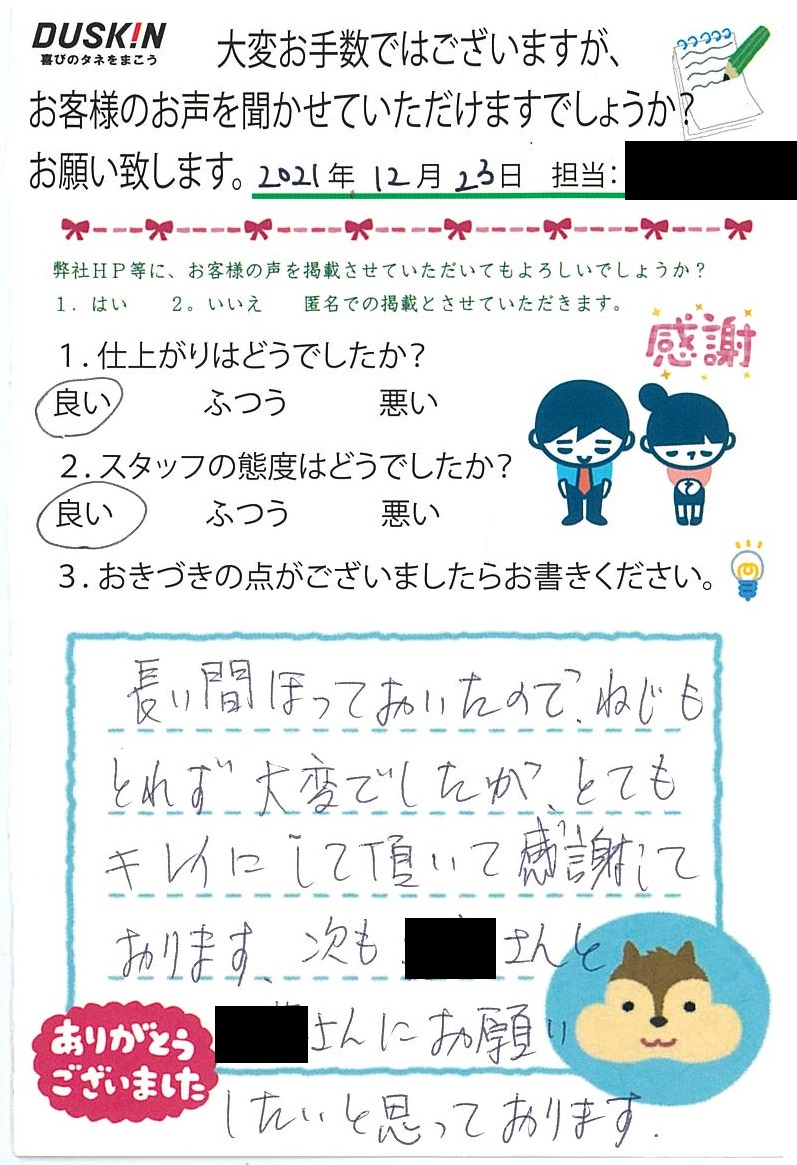 DUSK!N
喜びのタネをまこう
大変お手数ではございますが、
お客様のお声を聞かせていただけますでしょうか?
お願い致します。2021年 12月 23日 担当:
弊社HP等に、お客様の声を掲載させていただいてもよろしいでしょうか?
1. はい 2。いいえ 匿名での掲載とさせていただきます。
感謝
1.仕上がりはどうでしたか?
良い ふつう 悪い
2.スタッフの態度はどうでしたか?
良い ふつう 悪い
3.おきづきの点がございましたらお書きください。
長い間ほっておいたので、ねじも
とれず大変でしたが、とても
キレイにして頂いて感謝して
おります、次も さんと
さんにお願い
したいと思っております.
ありがとう
ございました